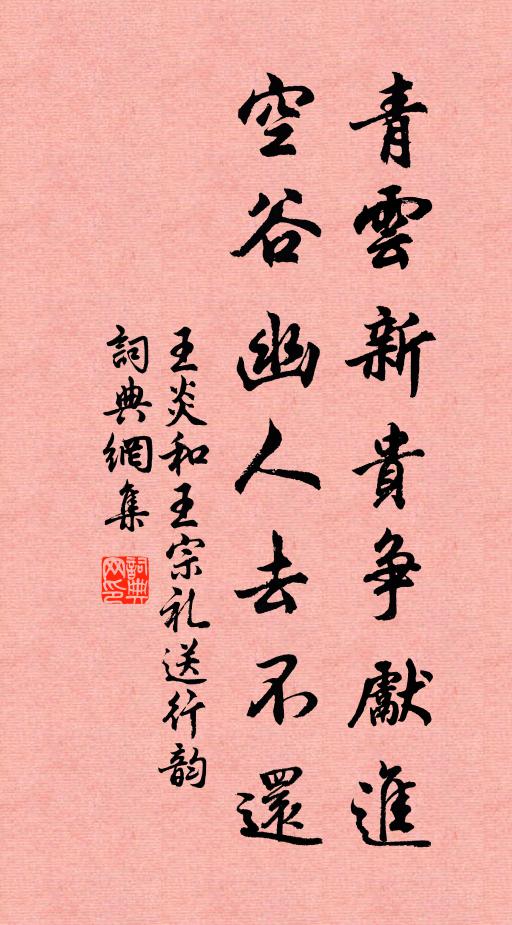 青雲新貴争獻進
空谷幽人去不還
王炎和王宗礼送行韵
詞典網集
詞典网印